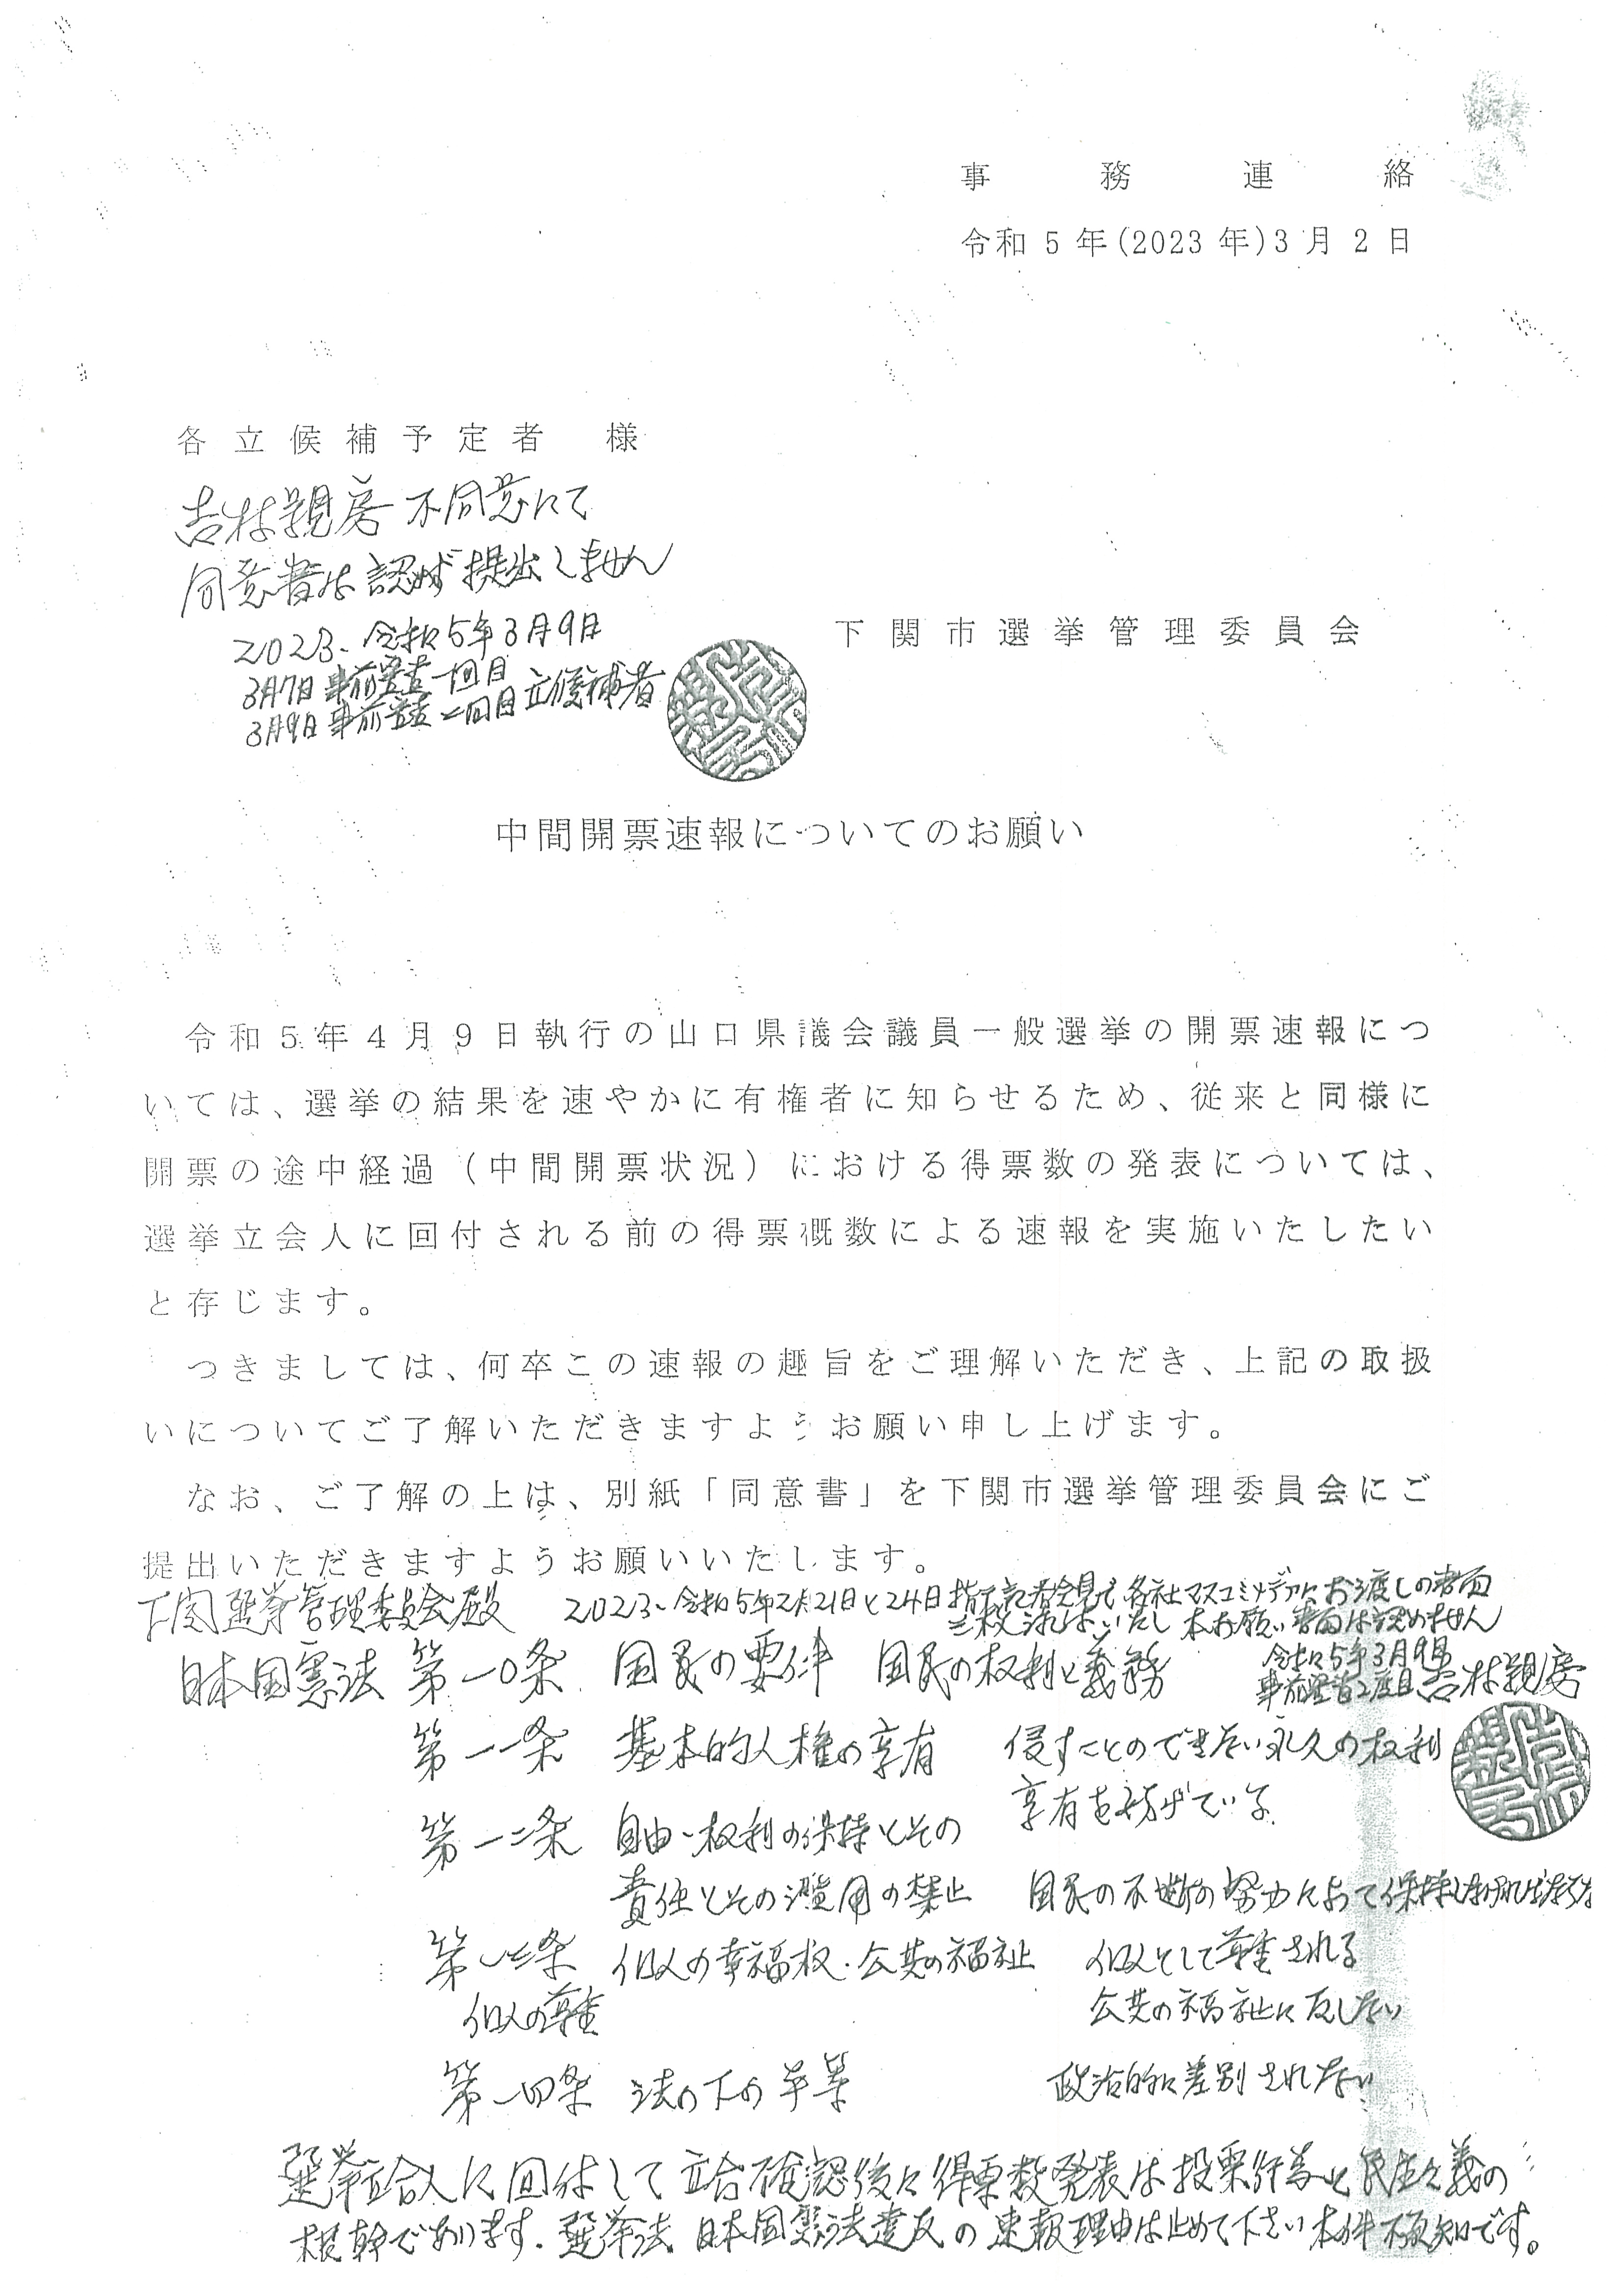 事務連絡
令和5年(2023年)3月2日
各立候補予定者 様
吉村親房 不同意にて
同意書は認めず提出しません
2023、令和5年3月9日
3月7日 事前審査一回目
3月9日 事前審査二回目 立候補者
下関市選挙管理委員会
中間開票速報についてのお願い
令和5年4月9日執行の山口県議会議員一般選挙の開票速報につ
いては、選挙の結果を速やかに有権者に知らせるため、従来と同様に
開票の途中経過(中間開票状況)における得票数の発表については、
選挙立会人に回付される前の得票概数による速報を実施いたしたい
と存じます。
つきましては、何卒この速報の趣旨をご理解いただき、上記の取扱
いについてご了解いただきますようお願い申し上げます。
なお、ご了解の上は、別紙「同意書」を下関市選挙管理委員会にご
提出いただきますようお願いいたします。
下関選挙管理委員会殿 2023、令和5年2月21日と24日 記者会見で各社マスコミメディアにお渡しの書面
三枚 本お願い書面は認めません
令和5年3月9日
事前審査2度目 吉村親房
日本国憲法 第一〇条 国民の要件 国民の権利と義務
第一一条 基本的人権の享有 侵すことのできない永久の権利
享有を妨げている
第一二条 自由・権利の保持とその
責任とその濫用の禁止 国民の不断の努力によって保持しなければならない
第一三条 個人の幸福权・公共の福祉 個人として尊重される
個人の尊重 公共の福祉に反しない
第一四条 法の下の平等 政治的に差別されない
選挙立会人に回付して立会確認後に得票数発表は投票行為と民主主義の
根幹であります。選挙法 日本国憲法違反の速報理由は止めて下さい 本件不承知です。